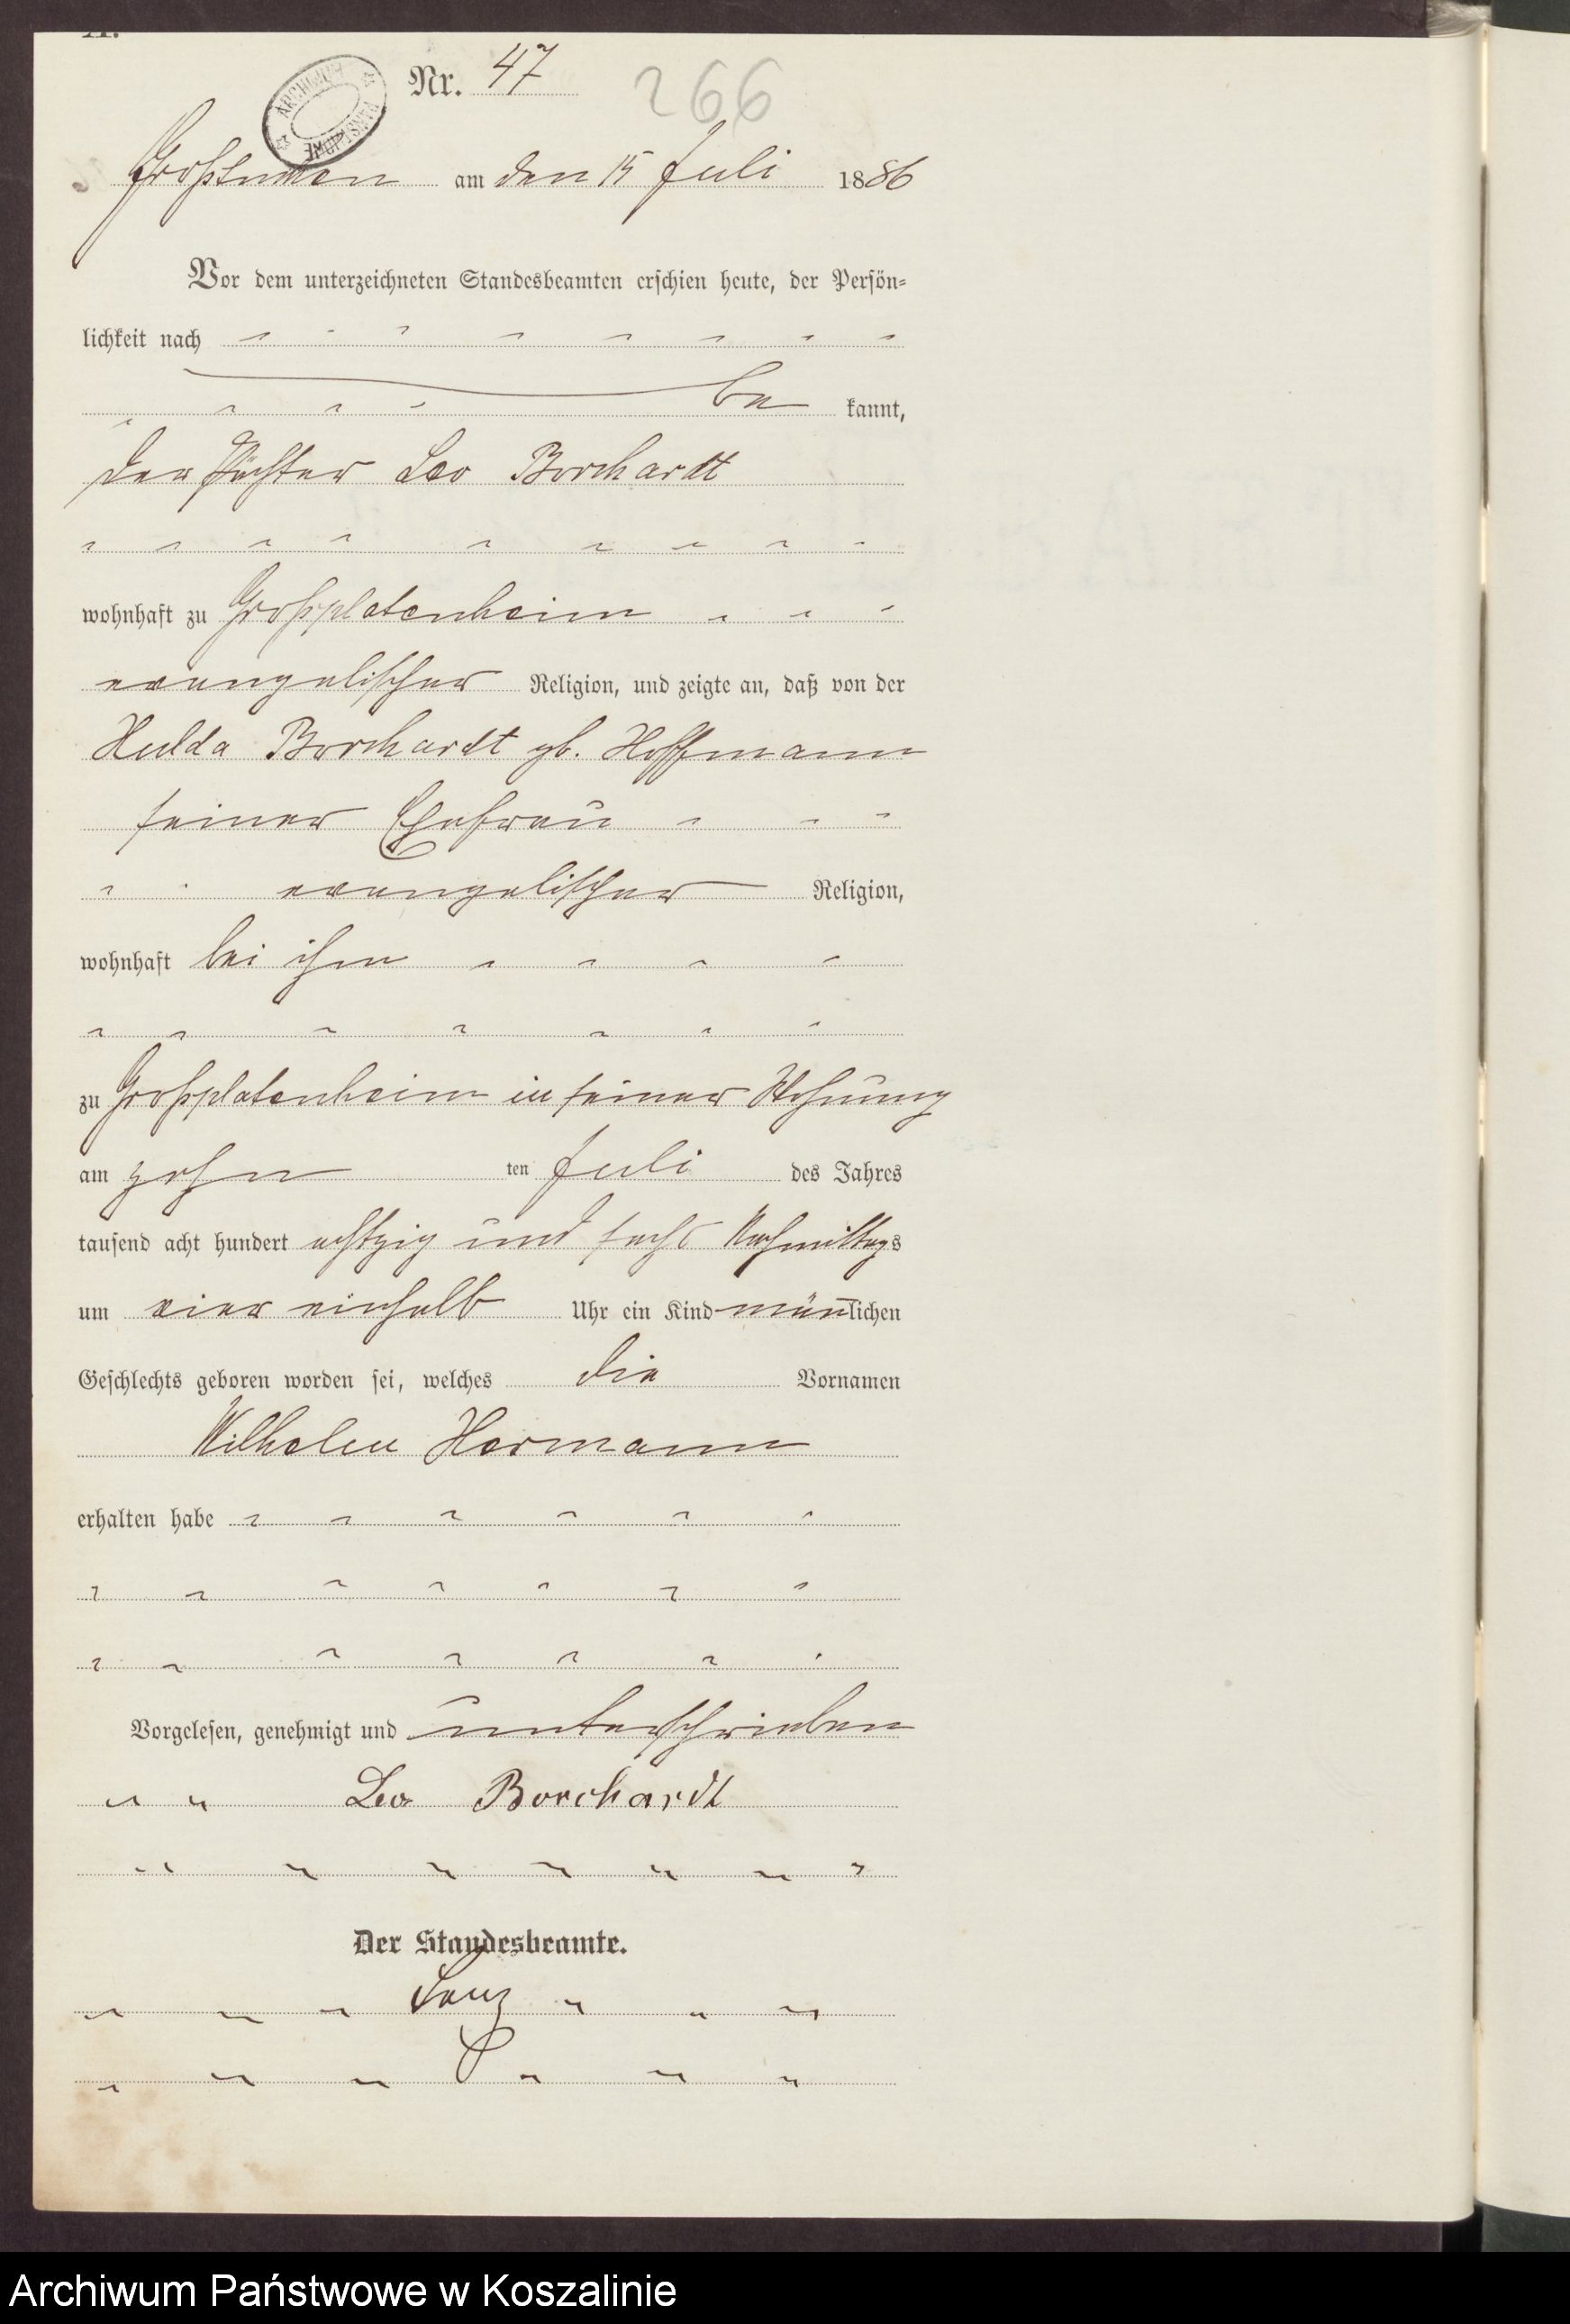 A.
Nr. 47
266
ARCHIWUM PAŃSTWOWE
Großtuchen am den 15 Juli 1886
Vor dem unterzeichneten Standesbeamten erschien heute, der Persön-
lichkeit nach
be kannt,
der Pächter Leo Borchardt
wohnhaft zu Großplatenheim
evangelischer Religion, und zeigte an, daß von der
Hulda Borchardt gb. Hoffmann
seiner Ehefrau
evangelischer Religion,
wohnhaft bei ihm
zu Großplatenheim in seiner Wohnung
am zehn ten Juli des Jahres
tausend acht hundert achtzig und sechs Nachmittags
um vier einhalb Uhr ein Kind männlichen
Geschlechts geboren worden sei, welches die Vornamen
Wilhelm Hermann
erhalten habe
Vorgelesen, genehmigt und unterschrieben
Leo Borchardt
Der Standesbeamte.
Archiwum Państwowe w Koszalinie